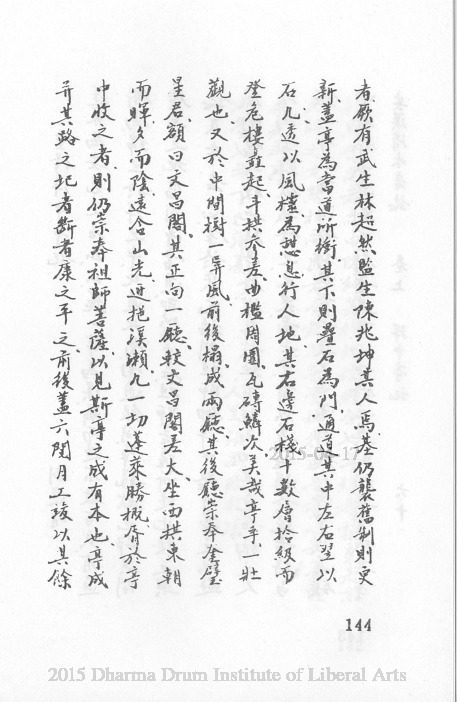 者厥有武生林超然監生陳兆坤其人焉基仍襲舊制則更
新蓋亭為當道所衝其下則疊石為門通道其中左右翌以
石几透以風櫺為憩息行人地其右邊石棧十數層拾級而
登危樓矗起斗拱參差曲檻周圍瓦磚鱗次美哉亭乎一壯
觀也又於中間樹一屏風前後榻成兩廳其後廳崇奉奎璧
星君額曰文昌閣其正向一廳較文昌閣差大坐西拱東朝
而暉夕而陰遠含山光近挹溪瀨凡一切蓬萊勝概胥於亭
中收之者則仍崇奉祖師菩薩以見斯亭之成有本也亭成
并其路之圮者斷者康之平之前後蓋六閱月工竣以其餘
144
2015-04-17
2015 Dharma Drum Institute of Liberal Arts